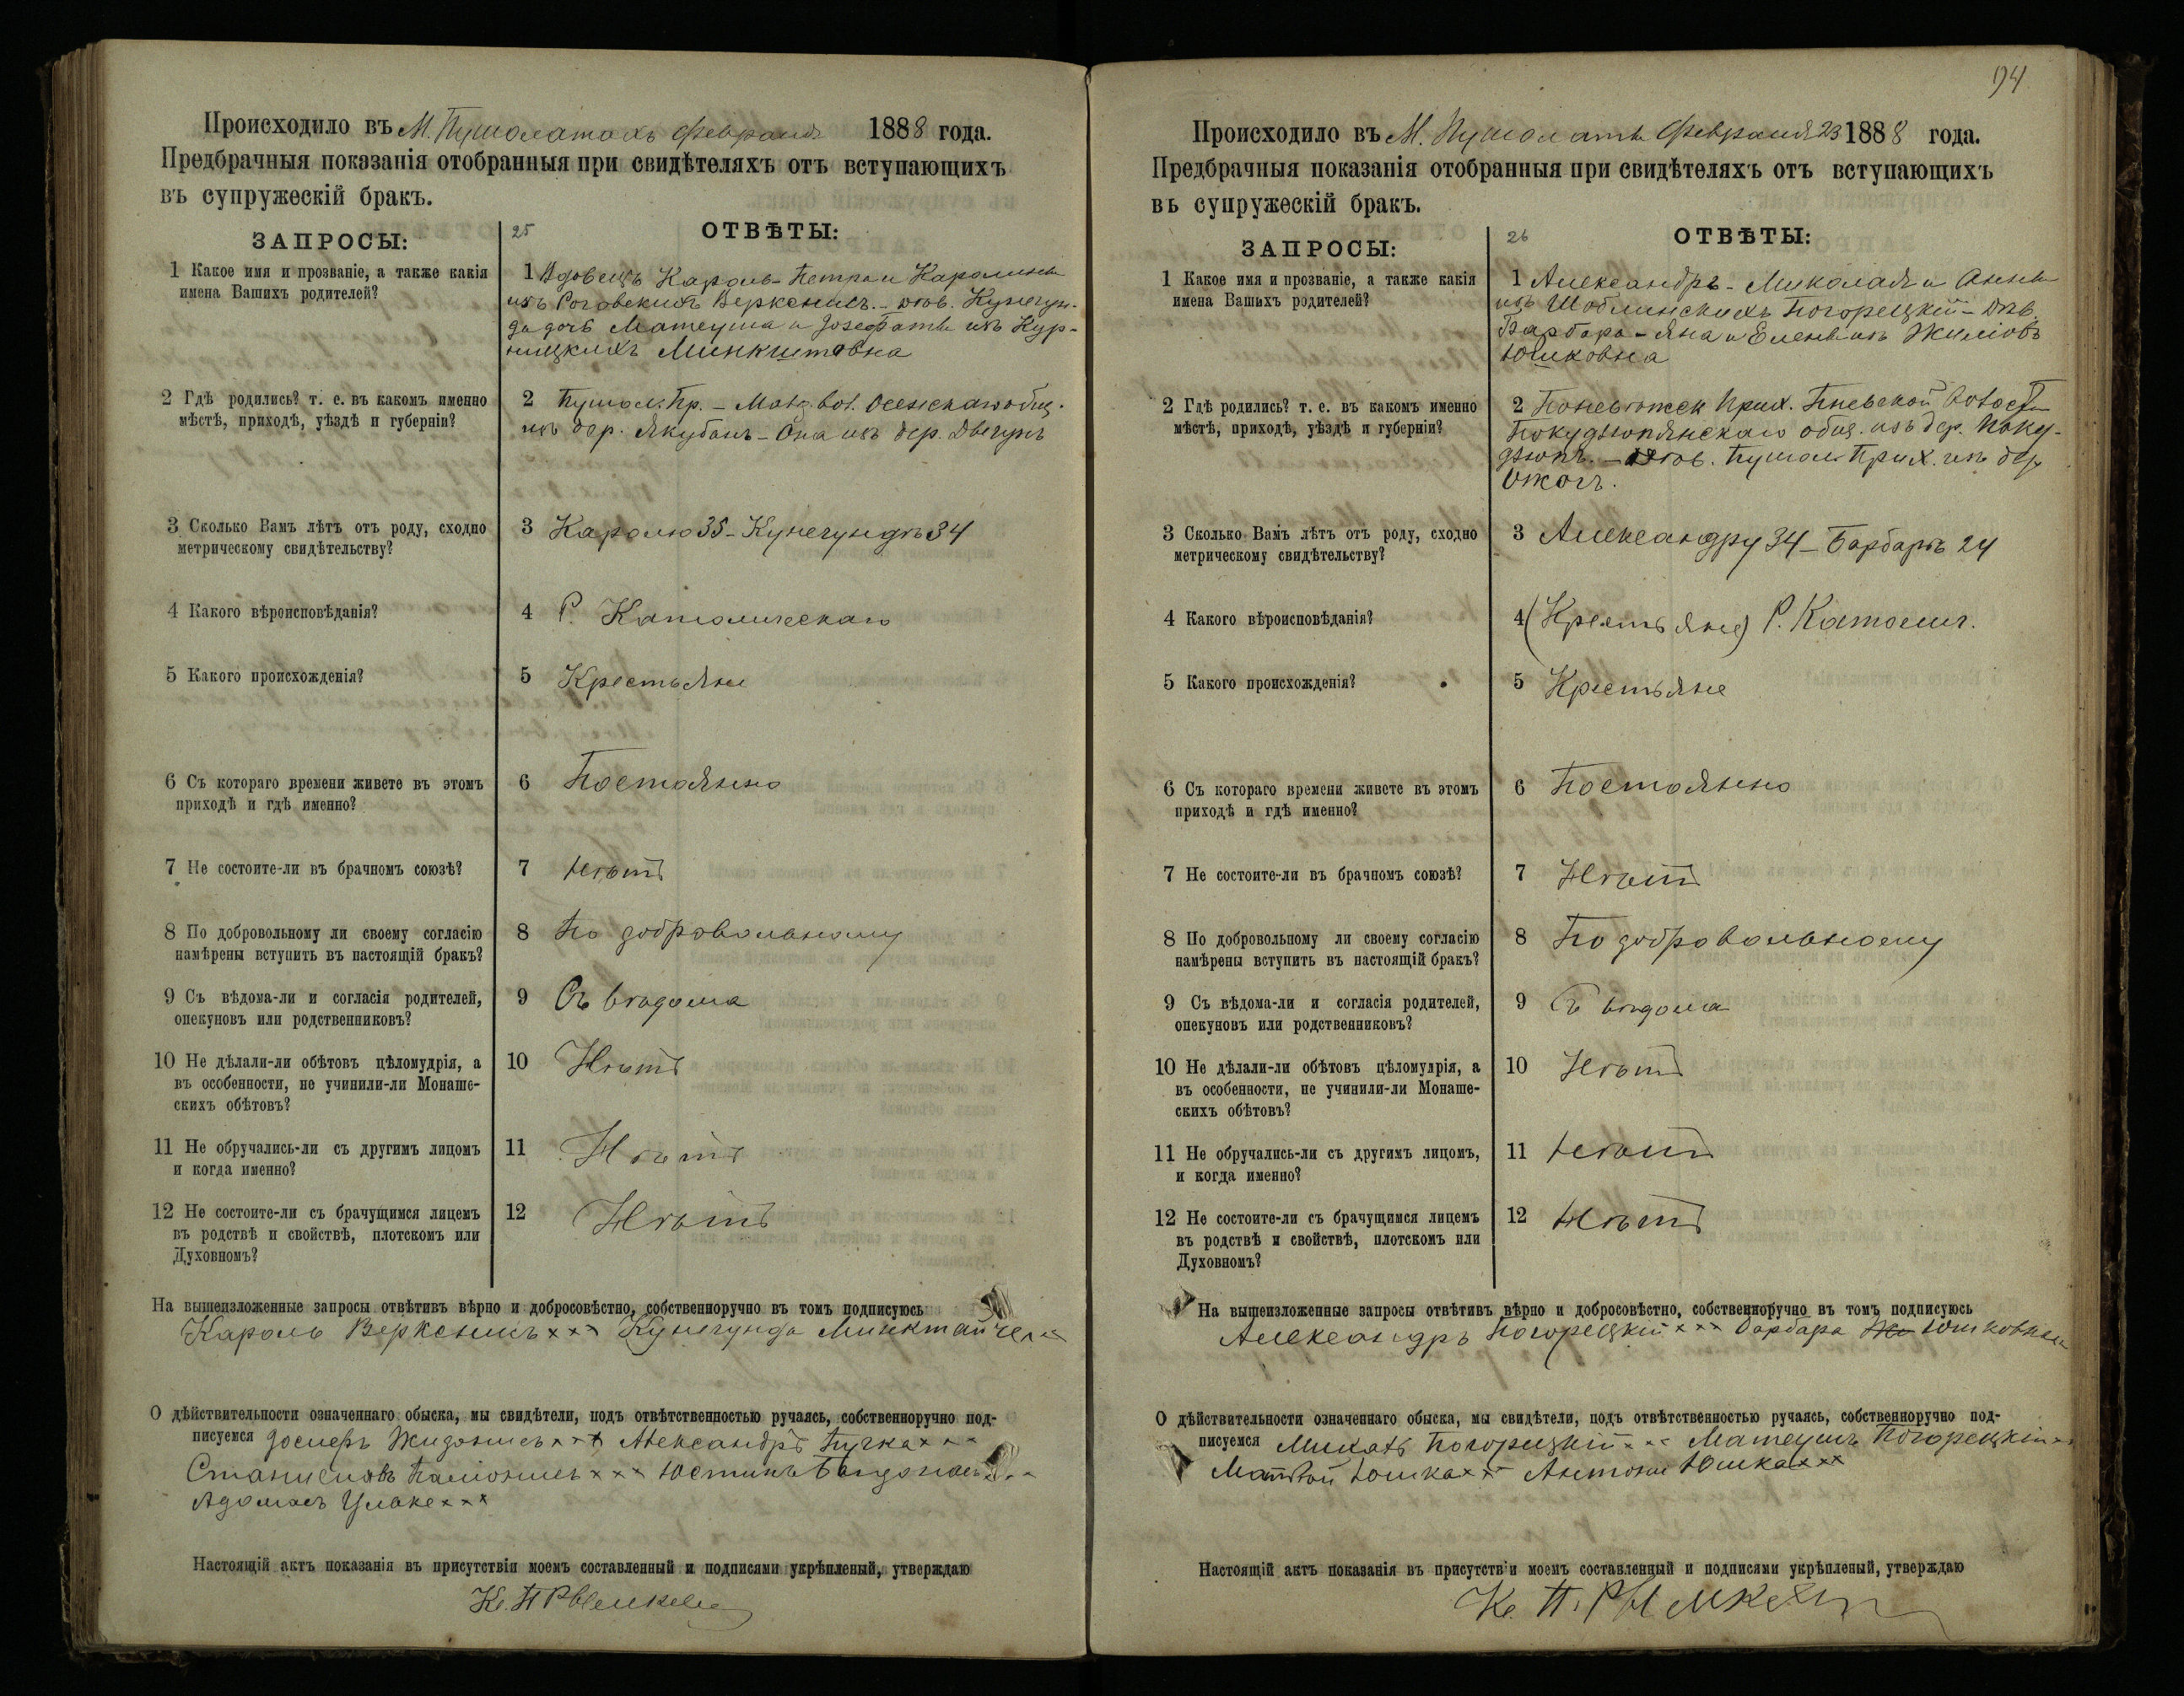 Происходило въ М. Пушолатахъ Февраля 1888 года.
Предбрачныя показанія отобранныя при свидѣтеляхъ отъ вступающихъ
въ супружескій бракъ.
ЗАПРОСЫ:
25 ОТВѢТЫ:
1 Какое имя и прозваніе, а также какія
имена Вашихъ родителей?
1 Вдовецъ Кароль Петра и Каролины
изъ Роговскихъ - дѣв. Кунегун-
да дочь Матеуша и изъ Кур-
ницкихъ
2 Гдѣ родились? т. е. въ какомъ именно
мѣстѣ, приходѣ, уѣздѣ и губерніи?
2 Пушол. Пр. - вол. общ.
изъ дер. Якубанъ - Она изъ дер.
3 Сколько Вамъ лѣтъ отъ роду, сходно
метрическому свидѣтельству?
3 Каролю 35 - Кунегундѣ 34
4 Какого вѣроисповѣданія?
4 Р. Католическаго
5 Какого происхожденія?
5 Крестьяне
6 Съ котораго времени живете въ этомъ
приходѣ и гдѣ именно?
6 Постоянно
7 Не состоите-ли въ брачномъ союзѣ?
7 Нѣтъ
8 По добровольному ли своему согласію
намѣрены вступить въ настоящій бракъ?
8 По добровольному
9 Съ вѣдома-ли и согласія родителей,
опекуновъ или родственниковъ?
9 Съ вѣдома
10 Не дѣлали-ли обѣтовъ цѣломудрія, а
въ особенности, не учинили-ли Монаше-
скихъ обѣтовъ?
10 Нѣтъ
11 Не обручались-ли съ другимъ лицомъ
и когда именно?
11 Нѣтъ
12 Не состоите-ли съ брачущимся лицемъ
въ родствѣ и свойствѣ, плотскомъ или
Духовномъ?
12 Нѣтъ
На вышеизложенные запросы отвѣтивъ вѣрно и добросовѣстно, собственноручно въ томъ подписуюсь
Кароль xxx Кунегунда
О дѣйствительности означеннаго обыска, мы свидѣтели, подъ отвѣтственностью ручаясь, собственноручно под-
писуемся xxx Александръ Пучка xxx
Станиславъ xxx Юстинъ
xxx
Настоящій актъ показанія въ присутствіи моемъ составленный и подписями укрѣпленый, утверждаю
Кс. П.
94
Происходило въ М. Пушолаты Февраля 23 1888 года.
Предбрачныя показанія отобранныя при свидѣтеляхъ отъ вступающихъ
въ супружескій бракъ.
ЗАПРОСЫ:
26 ОТВѢТЫ:
1 Какое имя и прозваніе, а также какія
имена Вашихъ родителей?
1 Александръ - Миколая и Анны
изъ Шоблинскихъ Погорецкій - Дѣв.
Барбара - Яна и Елены изъ
Юшковна
2 Гдѣ родились? т. е. въ какомъ именно
мѣстѣ, приходѣ, уѣздѣ и губерніи?
2 Прих. волости
общ. изъ дер.
- дѣв. Пушол. Прих. изъ дер.
3 Сколько Вамъ лѣтъ отъ роду, сходно
метрическому свидѣтельству?
3 Александру 34 - Барбарѣ 24
4 Какого вѣроисповѣданія?
4 (Крестьяне) Р. Католич.
5 Какого происхожденія?
5 Крестьяне
6 Съ котораго времени живете въ этомъ
приходѣ и гдѣ именно?
6 Постоянно
7 Не состоите-ли въ брачномъ союзѣ?
7 Нѣтъ
8 По добровольному ли своему согласію
намѣрены вступить въ настоящій бракъ?
8 По добровольному
9 Съ вѣдома-ли и согласія родителей,
опекуновъ или родственниковъ?
9 Съ вѣдома
10 Не дѣлали-ли обѣтовъ цѣломудрія, а
въ особенности, не учинили-ли Монаше-
скихъ обѣтовъ?
10 Нѣтъ
11 Не обручались-ли съ другимъ лицомъ,
и когда именно?
11 Нѣтъ
12 Не состоите-ли съ брачущимся лицемъ
въ родствѣ и свойствѣ, плотскомъ или
Духовномъ?
12 Нѣтъ
На вышеизложенные запросы отвѣтивъ вѣрно и добросовѣстно, собственноручно въ томъ подписуюсь
Александръ Погорецкій xxx Барбара Юшковна
О дѣйствительности означеннаго обыска, мы свидѣтели, подъ отвѣтственностью ручаясь, собственноручно под-
писуемся Погорецкій xxx Матеушъ Погорецкій xx
Матвей Юшка xxx Антоній Юшка xxx
Настоящій актъ показанія въ присутствіи моемъ составленный и подписями укрѣпленый, утверждаю
Кс. П.